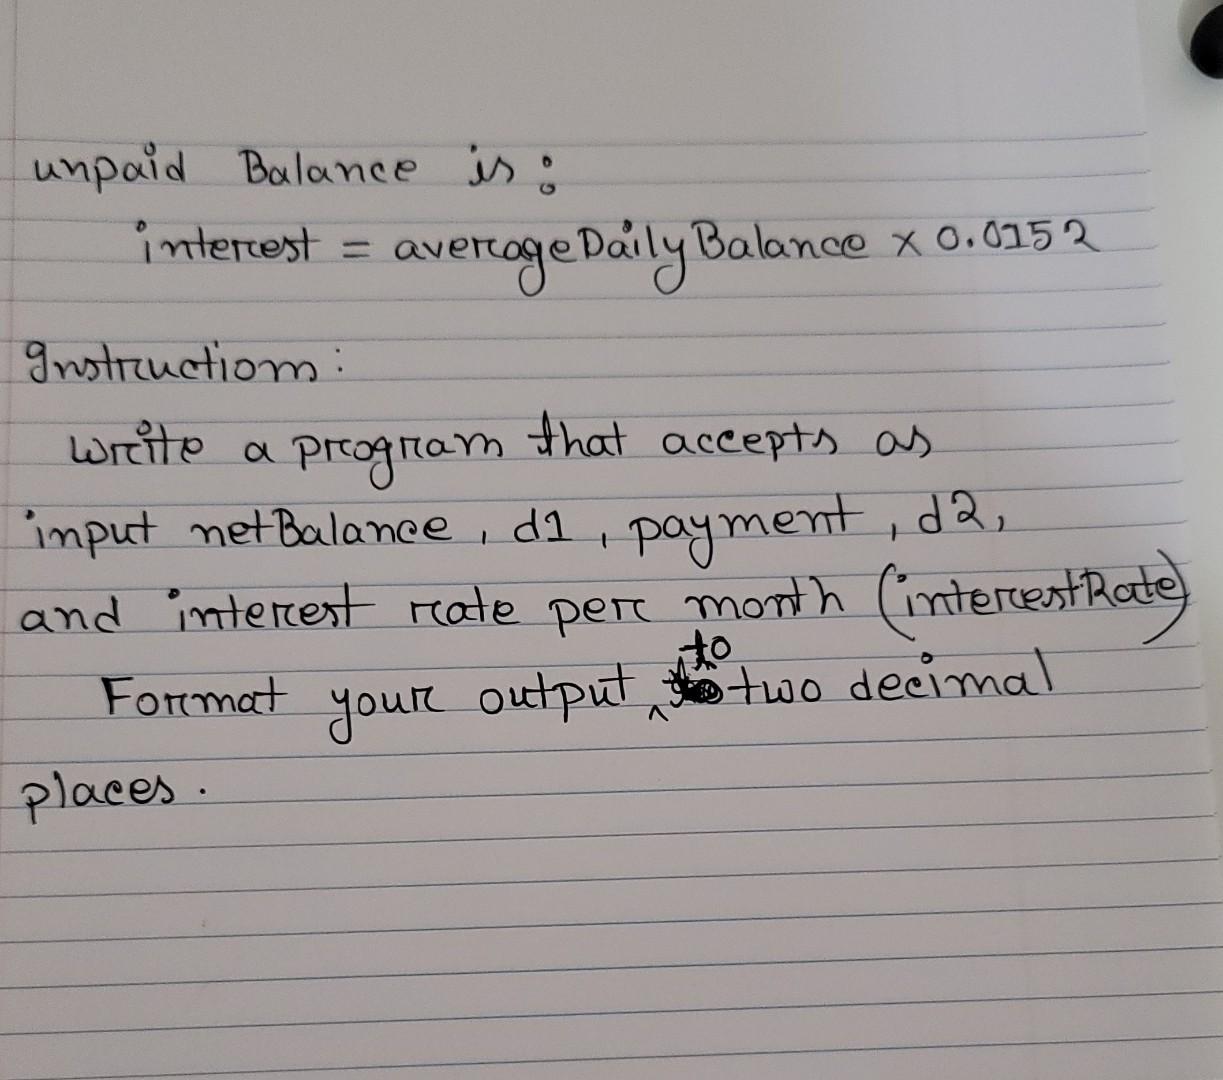 unpaid Balance is:
interest = averageDailyBalance × 0.0152
Instructions:
Write a program that accepts as
input netBalance, d1, payment, d2,
and interest rate per month (interestRate)
Format your output to two decimal
places.